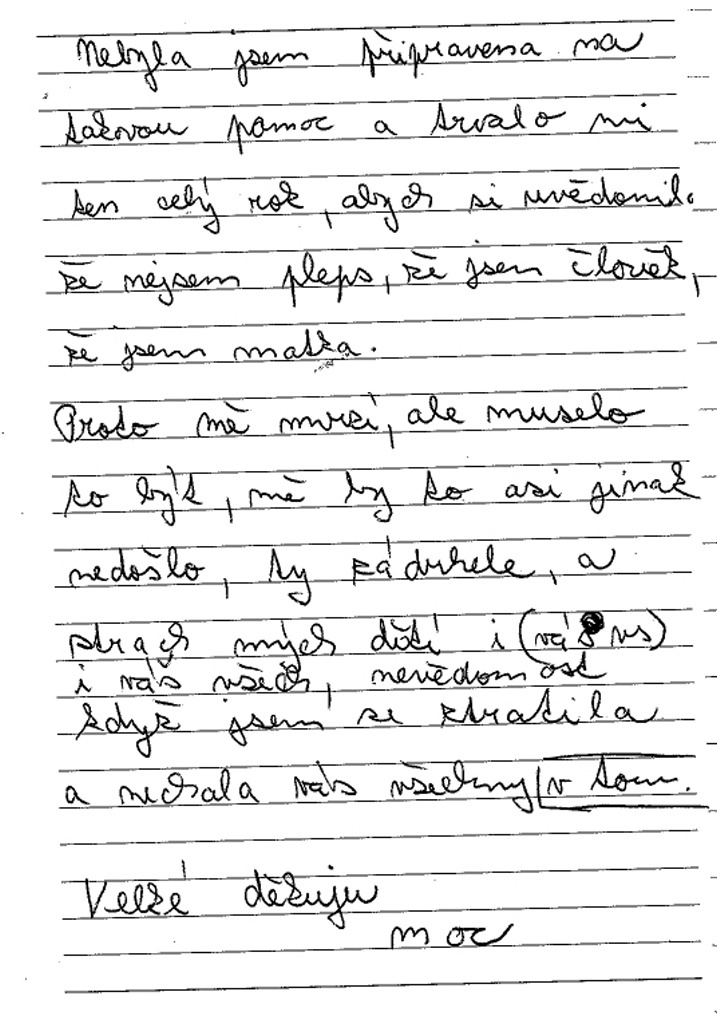 Nebyla jsem připravena na
takovou pomoc a trvalo mi
ten celý rok, abych si uvědomila
že nejsem pleps, že jsem člověk,
že jsem matka.
Proto mě mrzí, ale muselo
to být, mě by to asi jinak
nedošlo, ty zádrhele, a
strach mých dětí i (váš vs)
i váš všech, nevědomost
když jsem se ztratila
a nechala vás všechny v tom.
Velké děkuju
moc